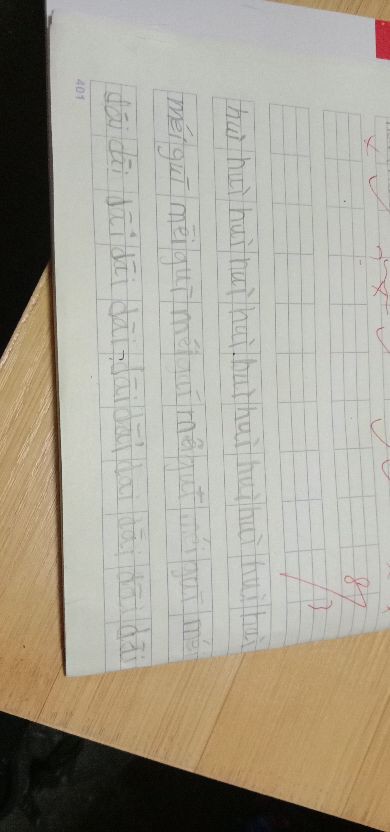 8/3
huì huì huì huì huì huì huì huì huì huì huì
méiguī méiguī méiguī méiguī méiguī méi
dāi dāi dāi dāi dāi dāi dāi dāi dāi dāi dāi
401